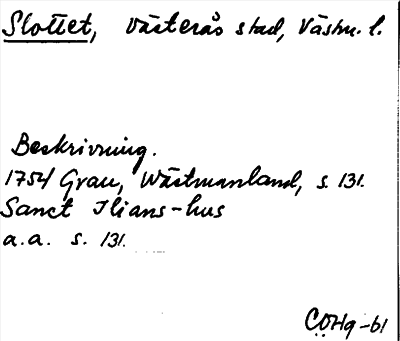 Slottet, Västerås stad, Västm. l.
Beskrivning.
1754 Grau, Wästmanland, s. 131.
Sanct Ilians-hus
a.a. s. 131.
CÖHg-61